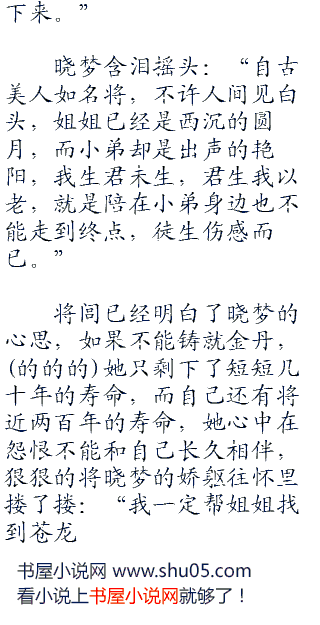 下来。”
晓梦含泪摇头：“自古
美人如名将，不许人间见白
头，姐姐已经是西沉的圆
月，而小弟却是出声的艳
阳，我生君未生，君生我以
老，就是陪在小弟身边也不
能走到终点，徒生伤感而
已。”
将闾已经明白了晓梦的
心思，如果不能铸就金丹，
(的的的)她只剩下了短短几
十年的寿命，而自己还有将
近两百年的寿命，她心中在
怨恨不能和自己长久相伴，
狠狠的将晓梦的娇躯往怀里
搂了搂：“我一定帮姐姐找
到苍龙
书屋小说网 www.shu05.com
看小说上书屋小说网就够了！